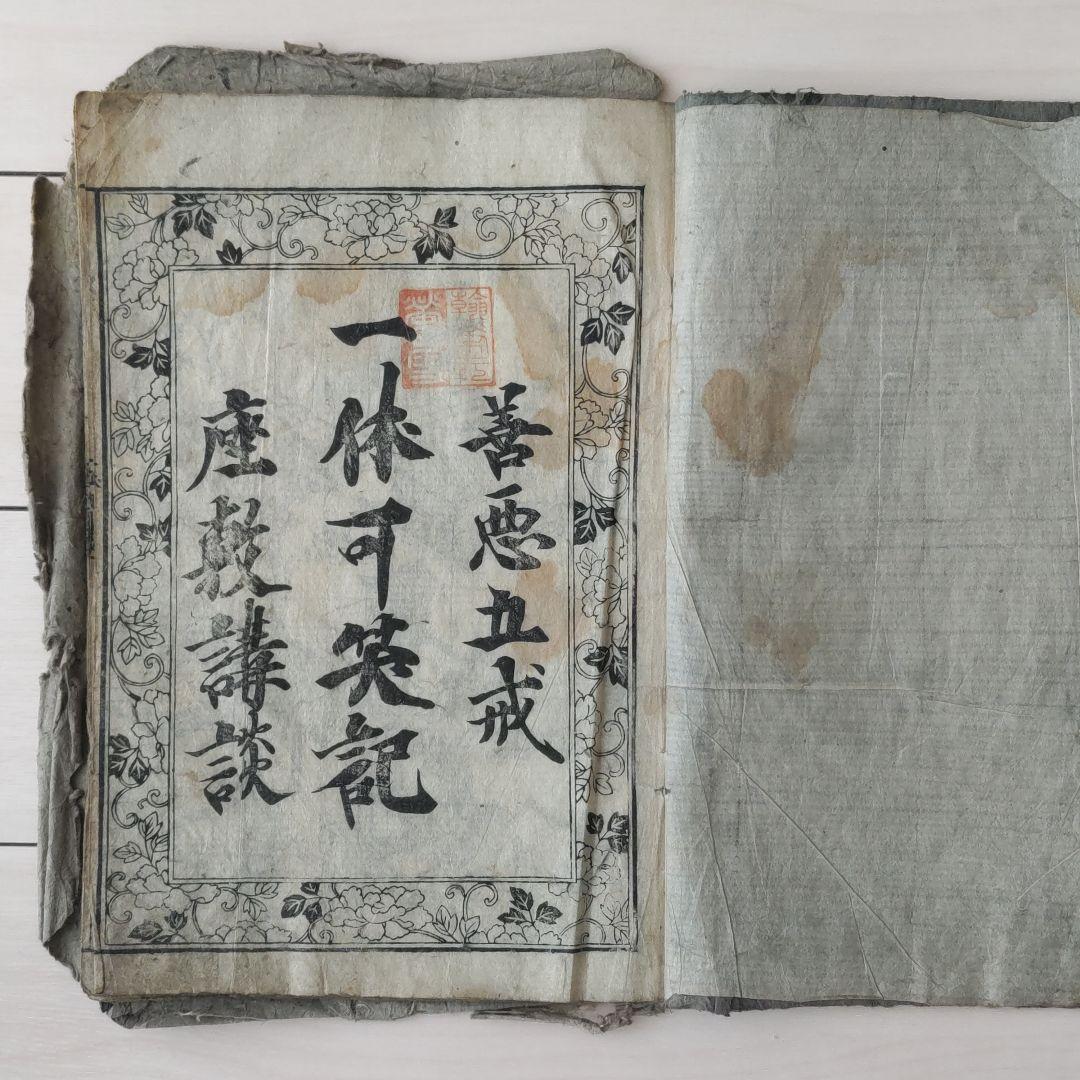 善悪五戒
一休可笑記
座敷講談